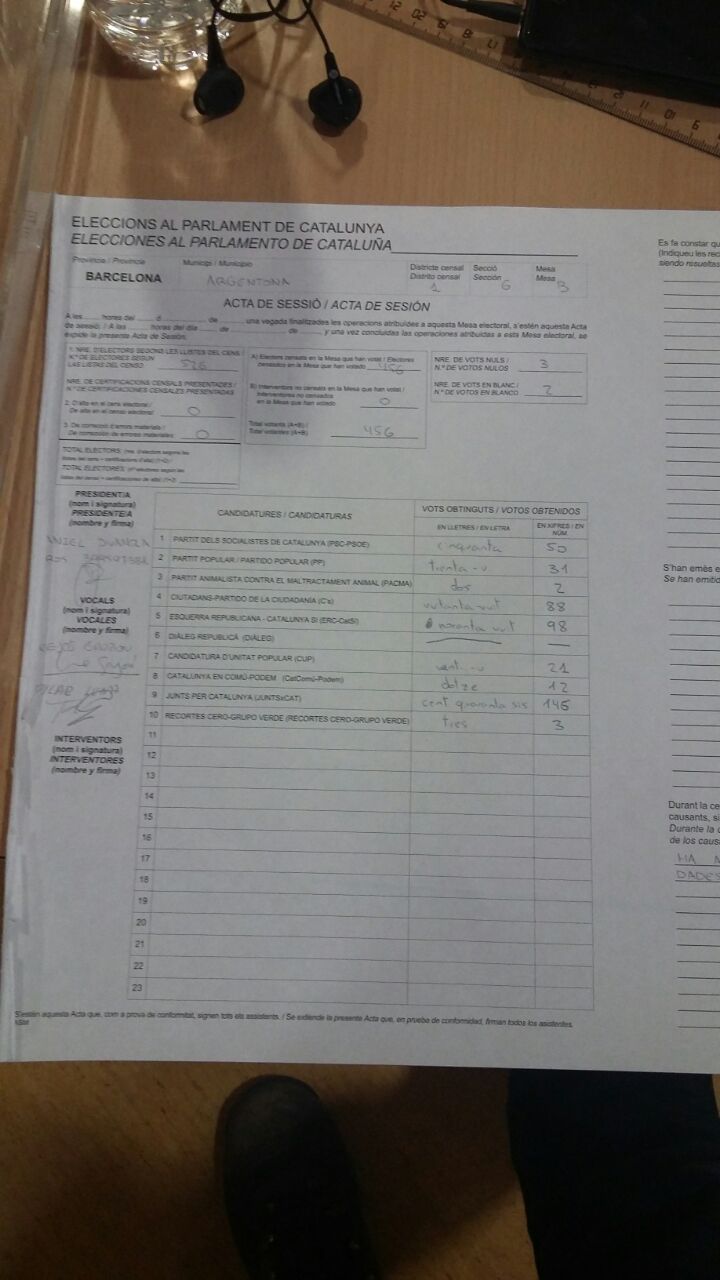 ELECCIONS AL PARLAMENT DE CATALUNYA
ELECCIONES AL PARLAMENTO DE CATALUÑA
Província / Provincia Municipi / Municipio Districte censal Secció Mesa
Distrito censal Sección Mesa
BARCELONA ARGENTONA 1 6 B
ACTA DE SESSIÓ / ACTA DE SESIÓN
A les hores del d de una vegada finalitzades les operacions atribuïdes a aquesta Mesa electoral, s'estén aquesta Acta
de sessió. / A las horas del día de de y una vez concluidas las operaciones atribuidas a esta Mesa electoral, se
expide la presente Acta de Sesión.
1. NRE. D'ELECTORS SEGONS LES LLISTES DEL CENS /
N.º DE ELECTORES SEGÚN
LAS LISTAS DEL CENSO
NRE. DE CERTIFICACIONS CENSALS PRESENTADES /
N.º DE CERTIFICACIONES CENSALES PRESENTADAS
2. D'alta en el cens electoral /
De alta en el censo electoral 0
3. De correcció d'errors materials /
De corrección de errores materiales 0
TOTAL ELECTORS
TOTAL ELECTORES
A) Electors censats en la Mesa que han votat / Electores
censados en la Mesa que han votado 456
B) Interventors no censats en la Mesa que han votat /
Interventores no censados
en la Mesa que han votado 0
Total votants (A+B) /
Total votantes (A+B) 456
NRE. DE VOTS NULS /
N.º DE VOTOS NULOS 3
NRE. DE VOTS EN BLANC /
N.º DE VOTOS EN BLANCO 2
PRESIDENT/A
(nom i signatura)
PRESIDENTE/A
(nombre y firma)
VOCALS
(nom i signatura)
VOCALES
(nombre y firma)
INTERVENTORS
(nom i signatura)
INTERVENTORES
(nombre y firma)
CANDIDATURES / CANDIDATURAS VOTS OBTINGUTS / VOTOS OBTENIDOS
EN LLETRES / EN LETRA EN XIFRES / EN NÚM.
1 PARTIT DELS SOCIALISTES DE CATALUNYA (PSC-PSOE) cinquanta 50
2 PARTIT POPULAR / PARTIDO POPULAR (PP) trenta-u 31
3 PARTIT ANIMALISTA CONTRA EL MALTRACTAMENT ANIMAL (PACMA) dos 2
4 CIUTADANS-PARTIDO DE LA CIUDADANÍA (C's) vuitanta vuit 88
5 ESQUERRA REPUBLICANA - CATALUNYA SÍ (ERC-CatSí) noranta vuit 98
6 DIÀLEG REPUBLICÀ (DIÀLEG) —
7 CANDIDATURA D'UNITAT POPULAR (CUP) vint-i-u 21
8 CATALUNYA EN COMÚ-PODEM (CatComú-Podem) dotze 12
9 JUNTS PER CATALUNYA (JUNTSxCAT) cent quaranta sis 146
10 RECORTES CERO-GRUPO VERDE (RECORTES CERO-GRUPO VERDE) tres 3
11
12
13
14
15
16
17
18
19
20
21
22
23
S'estén aquesta Acta que, com a prova de conformitat, signen tots els assistents. / Se extiende la presente Acta que, en prueba de conformidad, firman todos los asistentes.
Es fa constar qu
(Indiqueu les rec
siendo resueltas
S'han emès e
Se han emitid
Durant la ce
causants, si
Durante la c
de los caus
HA
DADES